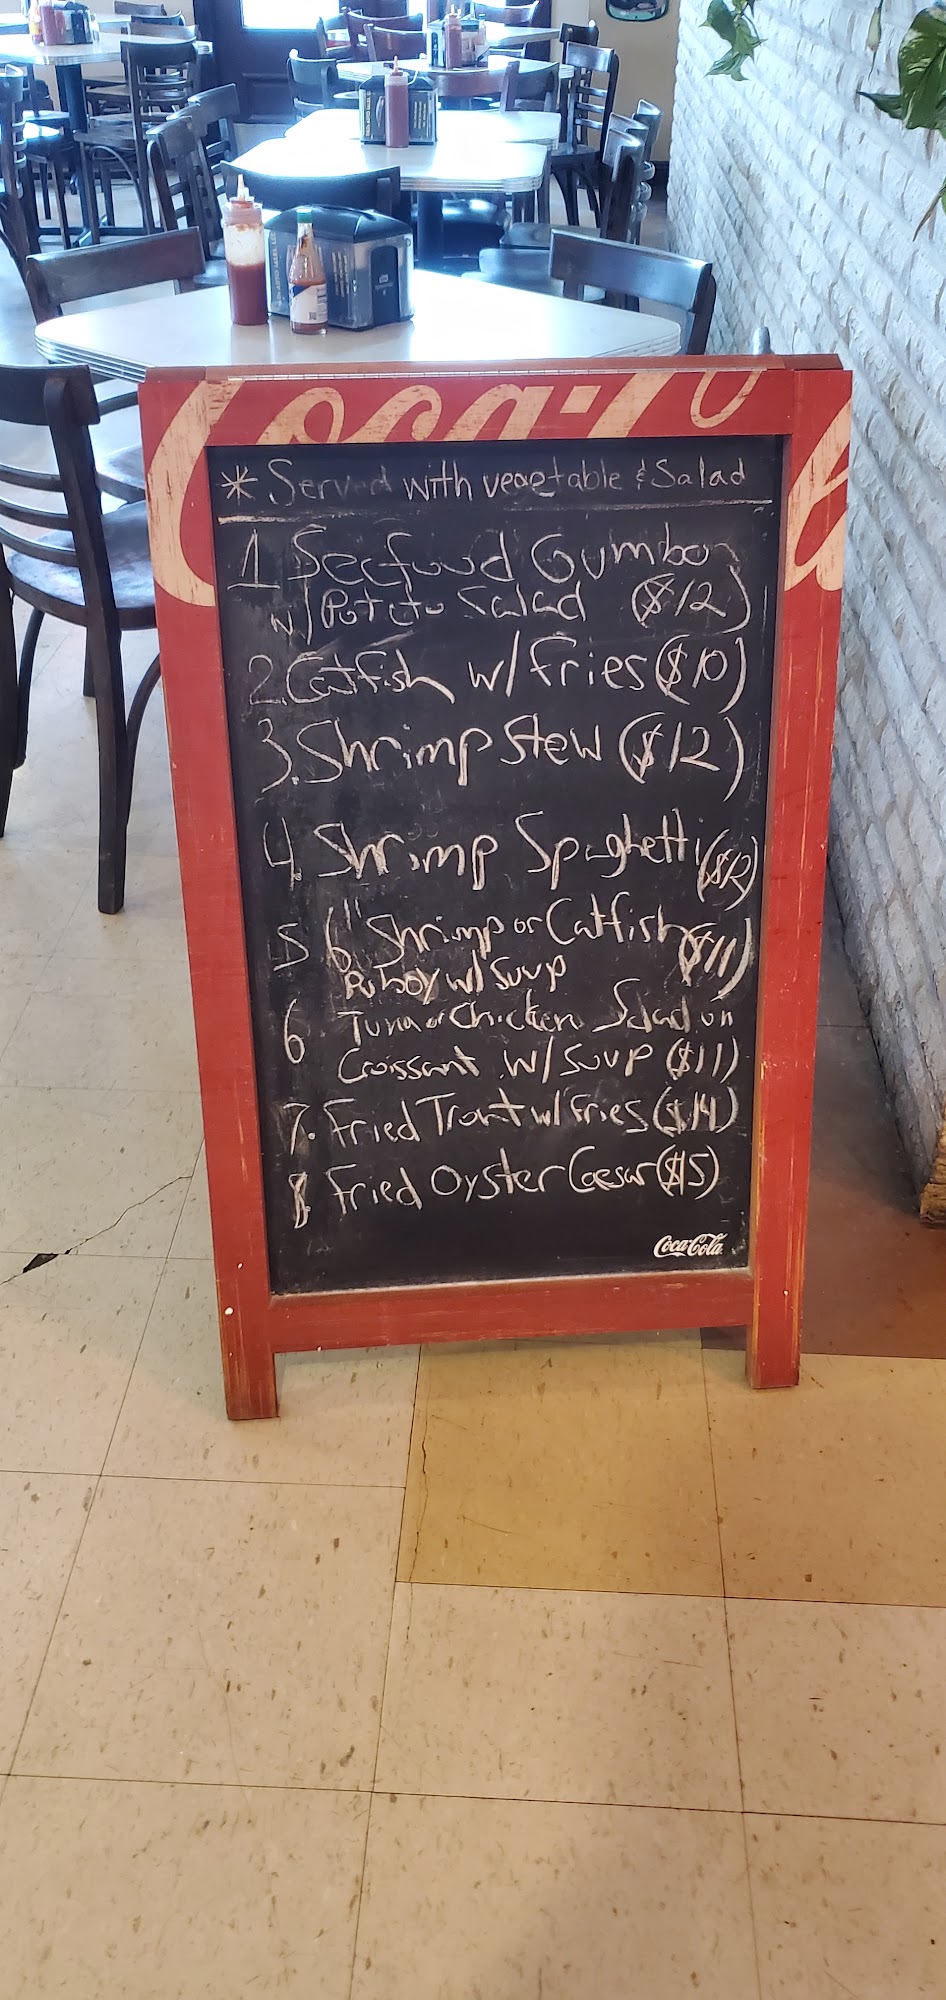 Coca-Co
* Served with vegetable & Salad
1 Seafood Gumbo
w/ Potato Salad ($12)
2. Catfish w/ fries ($10)
3. Shrimp Stew ($12)
4. Shrimp Spaghetti ($12)
5 6" Shrimp or Catfish ($11)
Poboy w/ Soup
6 Tuna or Chicken Salad on
Croissant w/ Soup ($11)
7. Fried Trout w/ Fries ($14)
8. Fried Oyster Caesar ($15)
Coca-Cola